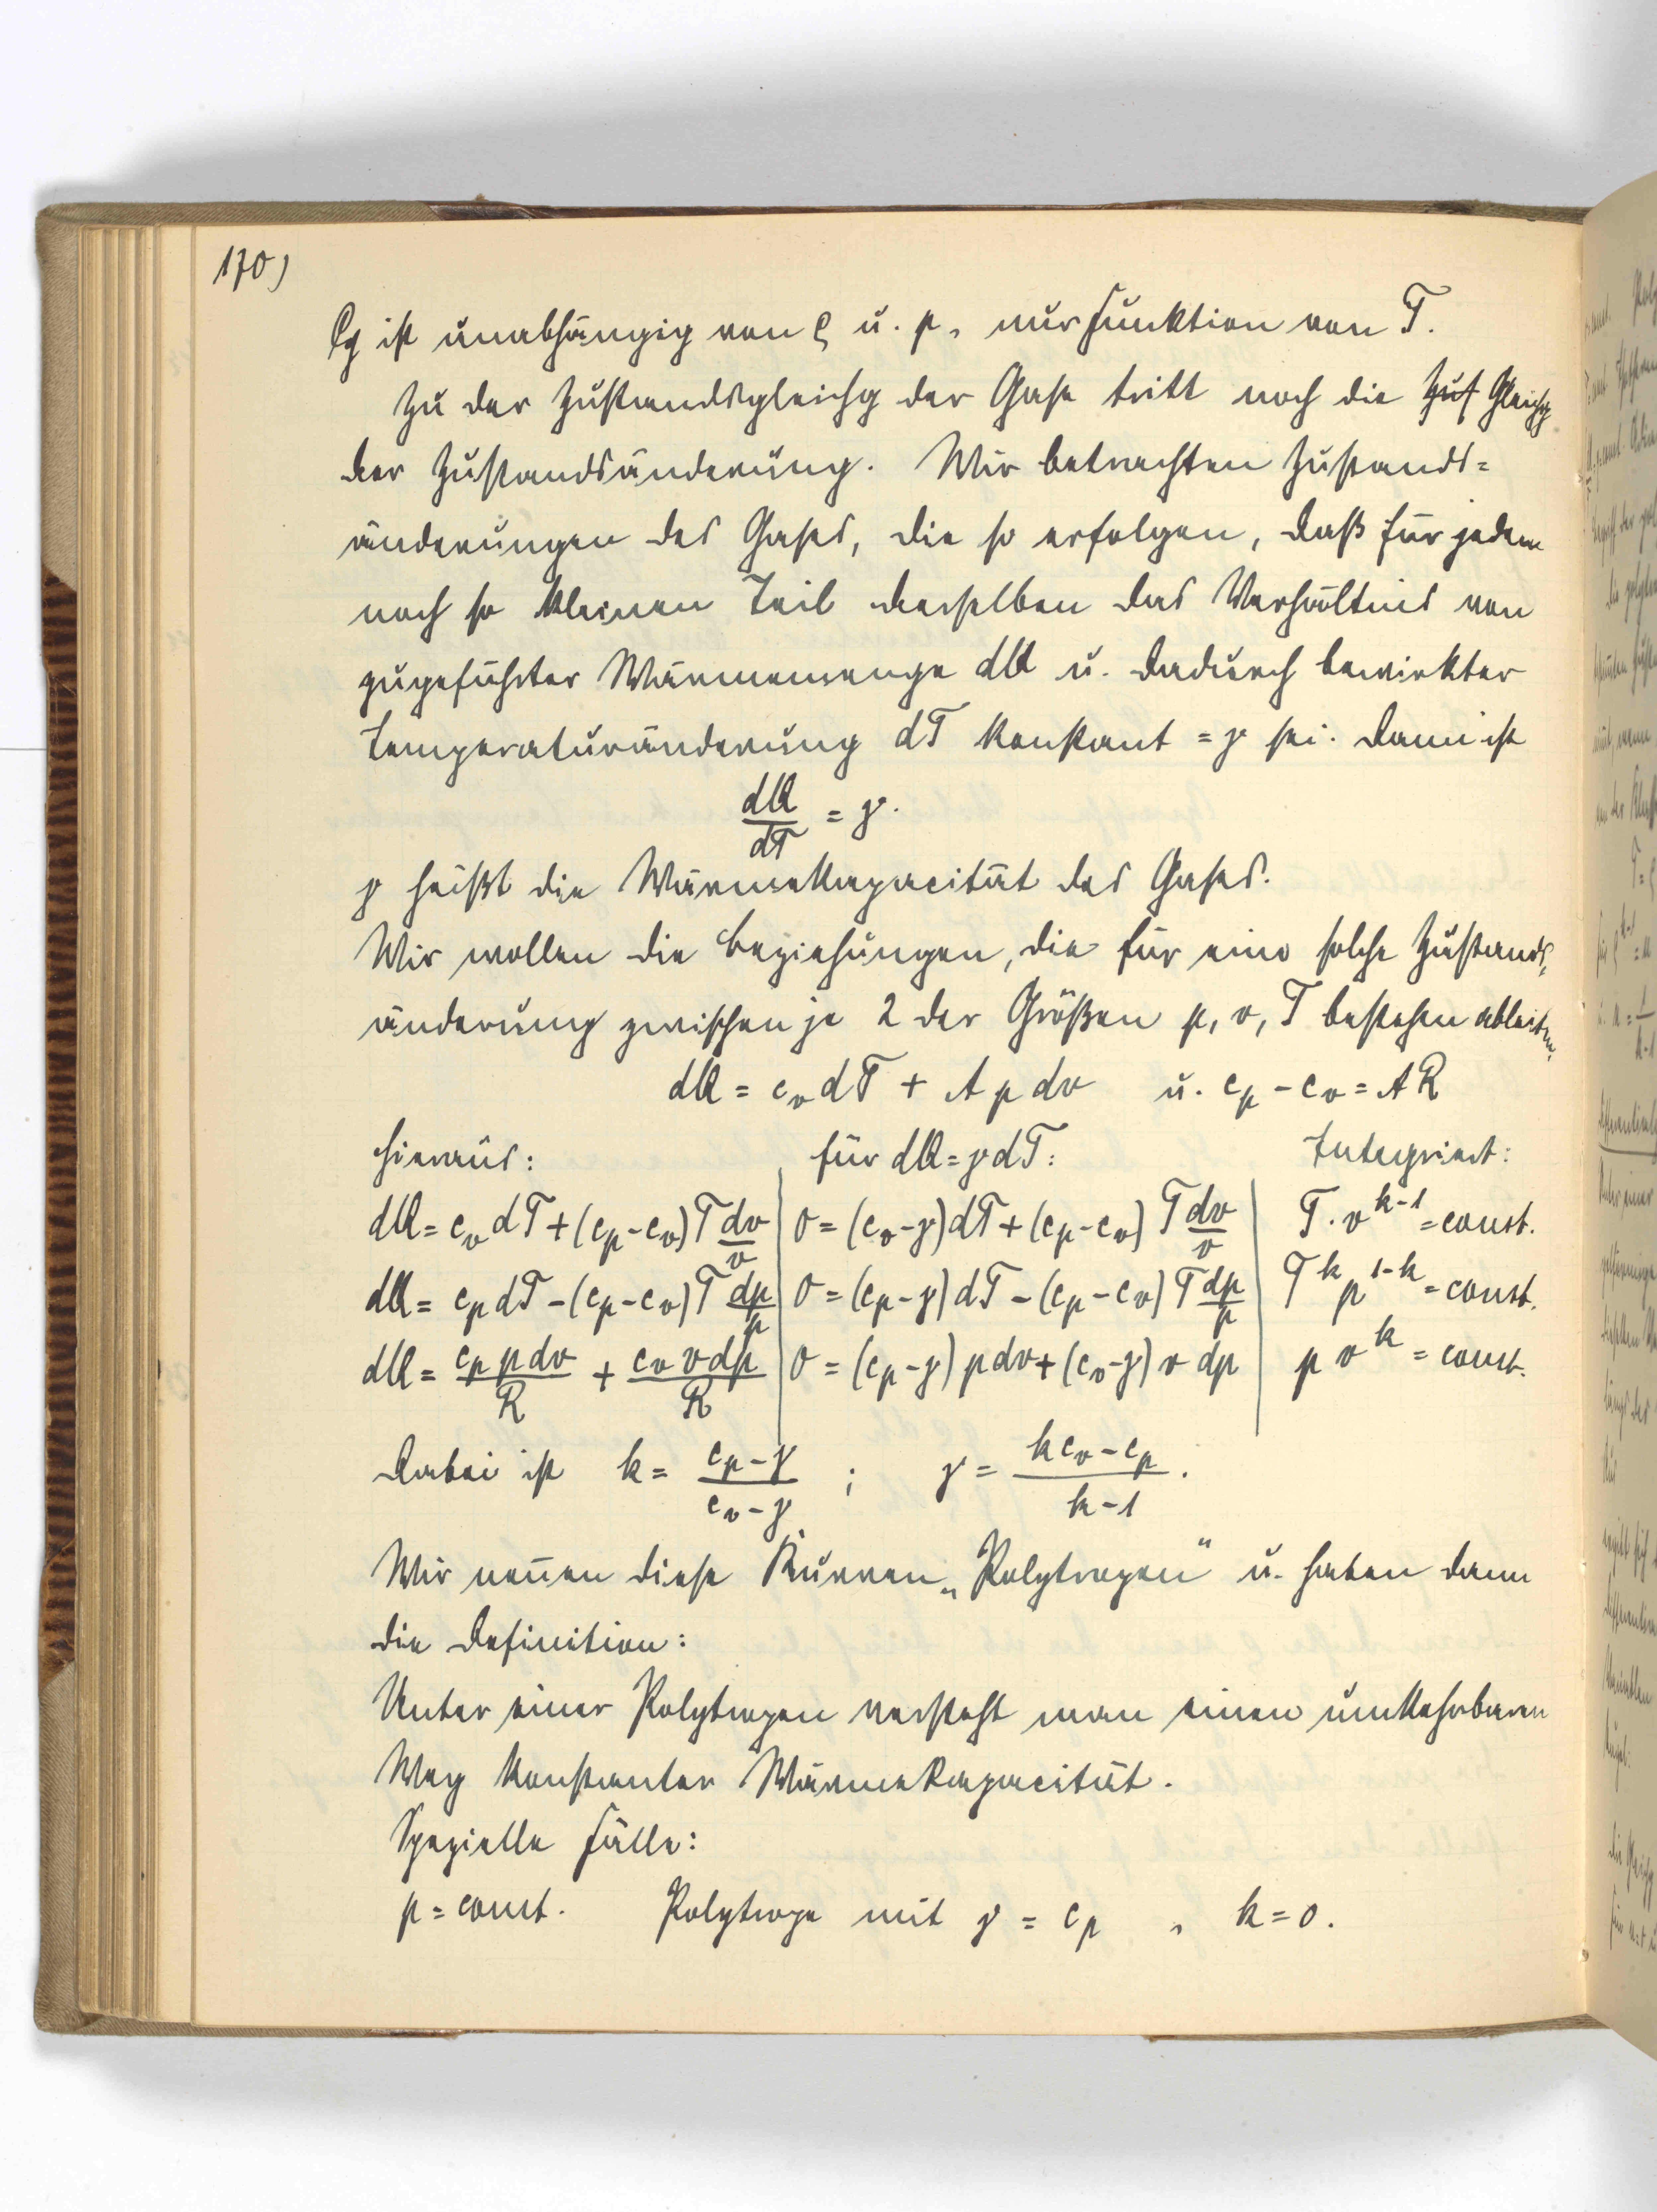 170)
ist unabhängig von ρ u. p, nur Funktion von T.
Zu der Zustandsgleichg der Gase tritt noch die Zus Gleichg
der Zustandsänderung. Wir betrachten Zustands=
änderungen des Gases, die so erfolgen, daß für jeden
noch so kleinen Teil desselben das Verhältnis von
zugeführter Wärmemenge dQ u. dadurch bewirkter
Temperaturänderung dT konstant = γ sei. Dann ist
dQ/dT = γ.
γ heißt die Wärmekapacität des Gases.
Wir wollen die Beziehungen, die für eine solche Zustands=
änderung zwischen je 2 der Größen p, v, T bestehen ableiten.
dQ = c_v dT + A p dv u. c_p - c_v = AR
Hieraus: für dQ = γdT: Integriert:
dQ = c_v dT + (c_p - c_v) T dv/v | 0 = (c_v - γ) dT + (c_p - c_v) T dv/v | T · v^{k-1} = const.
dQ = c_p dT - (c_p - c_v) T dp/p | 0 = (c_p - γ) dT - (c_p - c_v) T dp/p | T^k p^{1-k} = const.
dQ = c_p p dv/R + c_v v dp/R | 0 = (c_p - γ) p dv + (c_v - γ) v dp | p v^k = const.
Dabei ist k = (c_p - γ)/(c_v - γ) ; γ = (k c_v - c_p)/(k - 1).
Wir nen̄en diese Kurven „Polytropen" u. haben dann
die Definition:
Unter einer Polytropen versteht man einen umkehrbaren
Weg konstanter Wärmekapacität.
Spezielle Fälle:
p = const. Polytrope mit γ = c_p , k = 0.